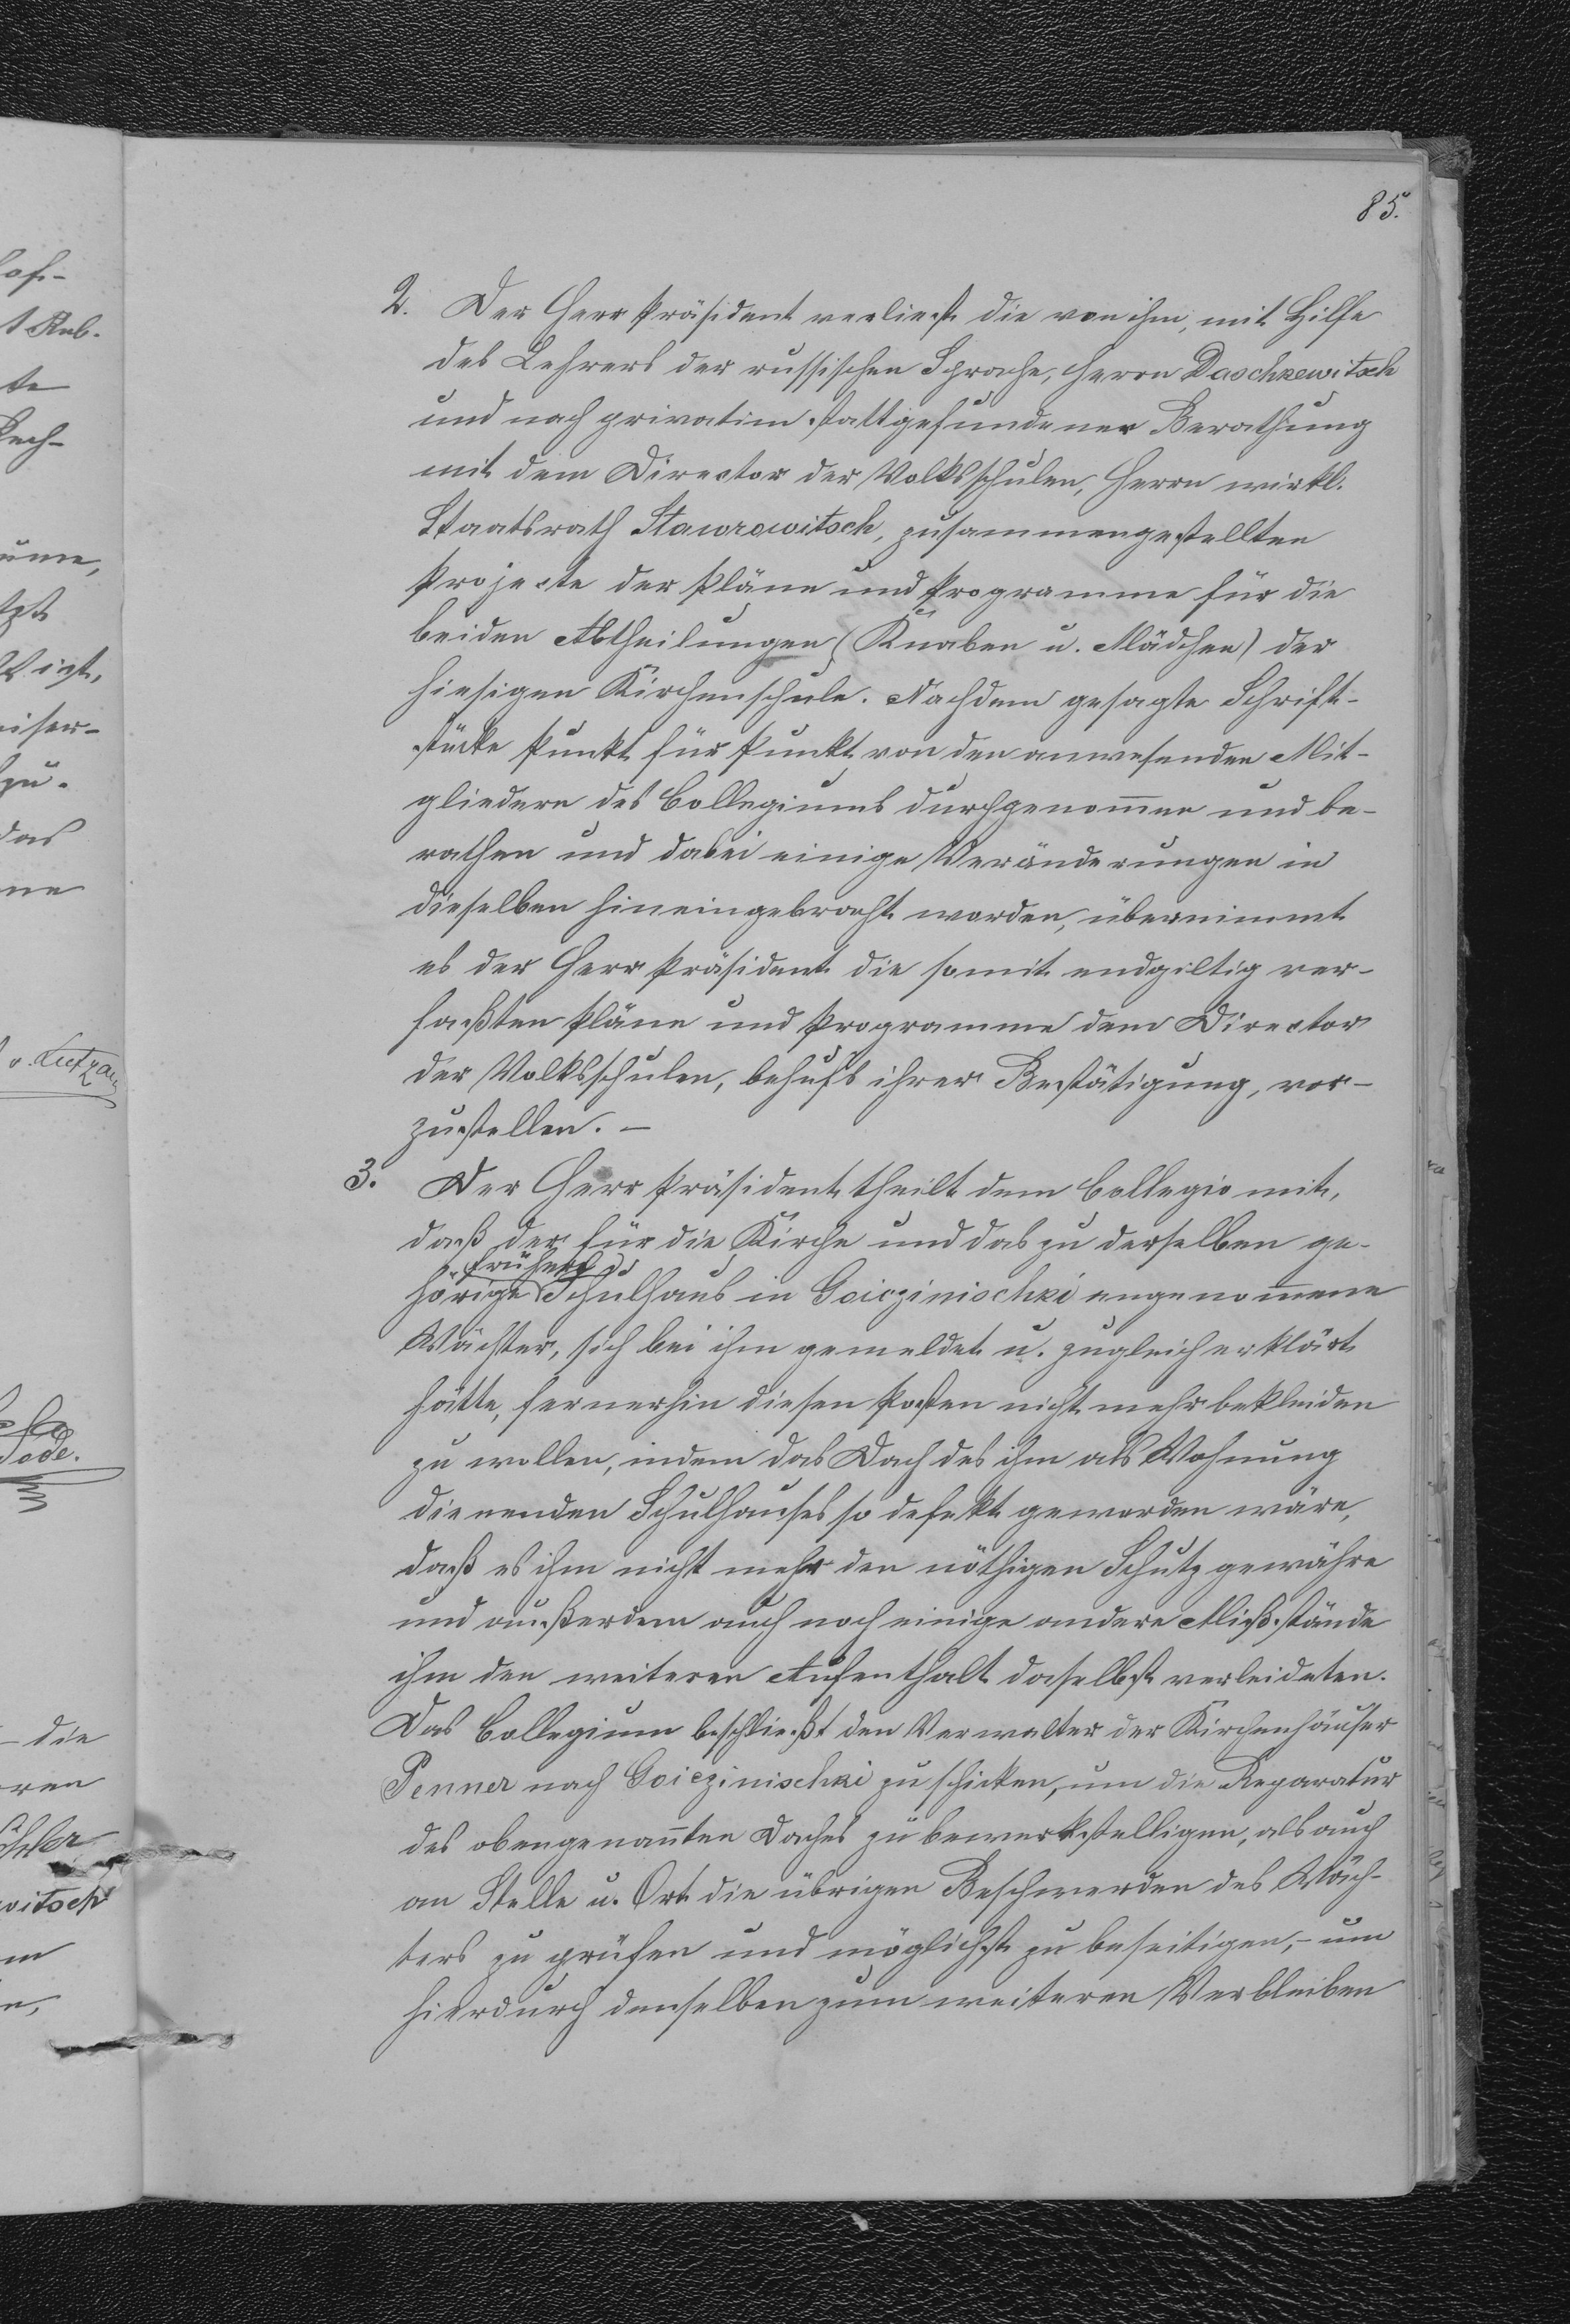 85.
2. Der Herr Präsident verliest die von ihm, mit Hilfe
des Lehrers der russischen Sprache, Herrn Daschkewitsch
und nach privatim stattgefundener Berathung
mit dem Director der Volksschulen, Herrn wirkl.
Staatsrath Stawrowitsch, zusammengestellten
Projecte der Pläne und Programme für die
beiden Abtheilungen (Knaben u. Mädchen) der
hiesigen Kirchenschule. Nachdem gesagte Schrift-
stücke Punkt für Punkt von den anwesenden Mit-
gliedern des Collegiums durchgenom̄en und be-
rathen und dabei einige Veränderungen in
dieselben hineingebracht worden, übernimmt
es der Herr Präsident die somit endgiltig ver-
faßten Pläne und Programme dem Director
der Volksschulen, behufs ihrer Bestätigung, vor-
zustellen. –
3. Der Herr Präsident theilt dem Collegio mit,
daß der für die Kirche und das zu derselben ge-
frühere
hörige Schulhaus in Goiczinischki angenom̄ene
Wächter, sich bei ihm gemeldet u. zugleich erklärt
hätte, fernerhin diesen Posten nicht mehr bekleiden
zu wollen, indem das Dach des ihm als Wohnung
dienenden Schulhauses so defekt geworden wäre,
daß es ihm nicht mehr den nöthigen Schutz gewähre
und außerdem auch noch einige andere Mißstände
ihm den weiteren Aufenthalt daselbst verleideten.
Das Collegium beschließt den Verwalter der Kirchenhäuser
Penner nach Goiczinischki zu schicken, um die Reparatur
des obengenan̄ten Daches zu bewerkstelligen, als auch
an Stelle u. Ort die übrigen Beschwerden des Wäch-
ters zu prüfen und möglichst zu beseitigen, – um
hierdurch denselben zum weiteren Verbleiben